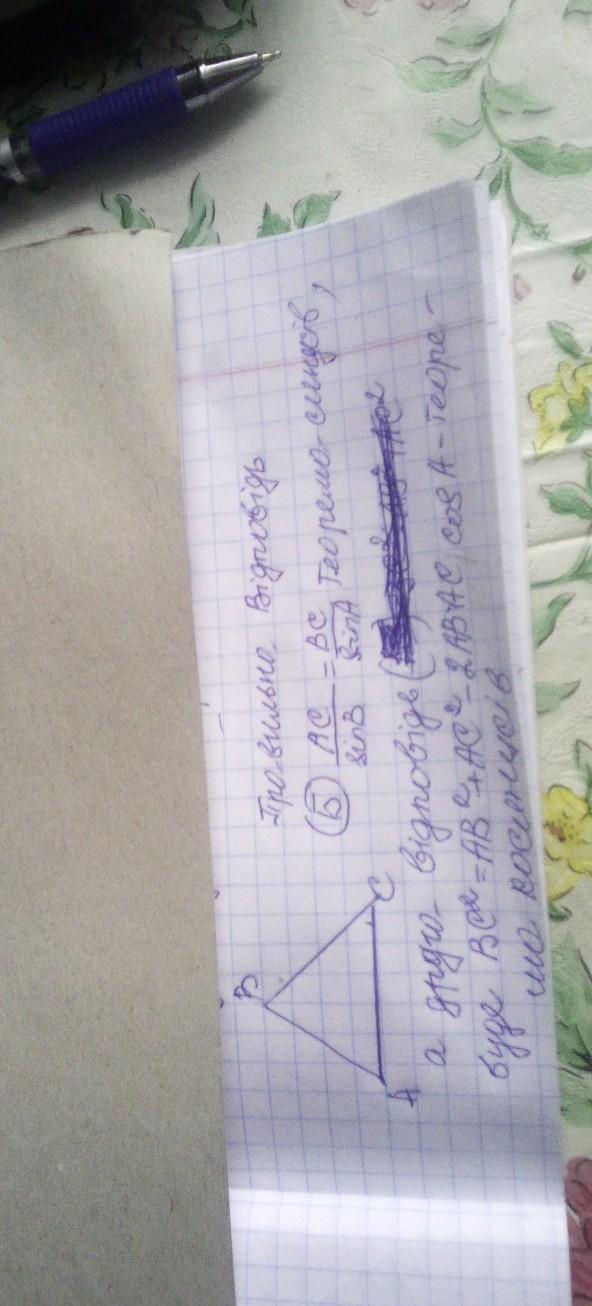 Правильна Відповідь
(Б) AC/sinB = BC/sinA Теорема синусів,
B
A
C
а друга відповідь (
буде BC² = AB² + AC² - 2AB·AC cos A - теоре-
ма косинусів